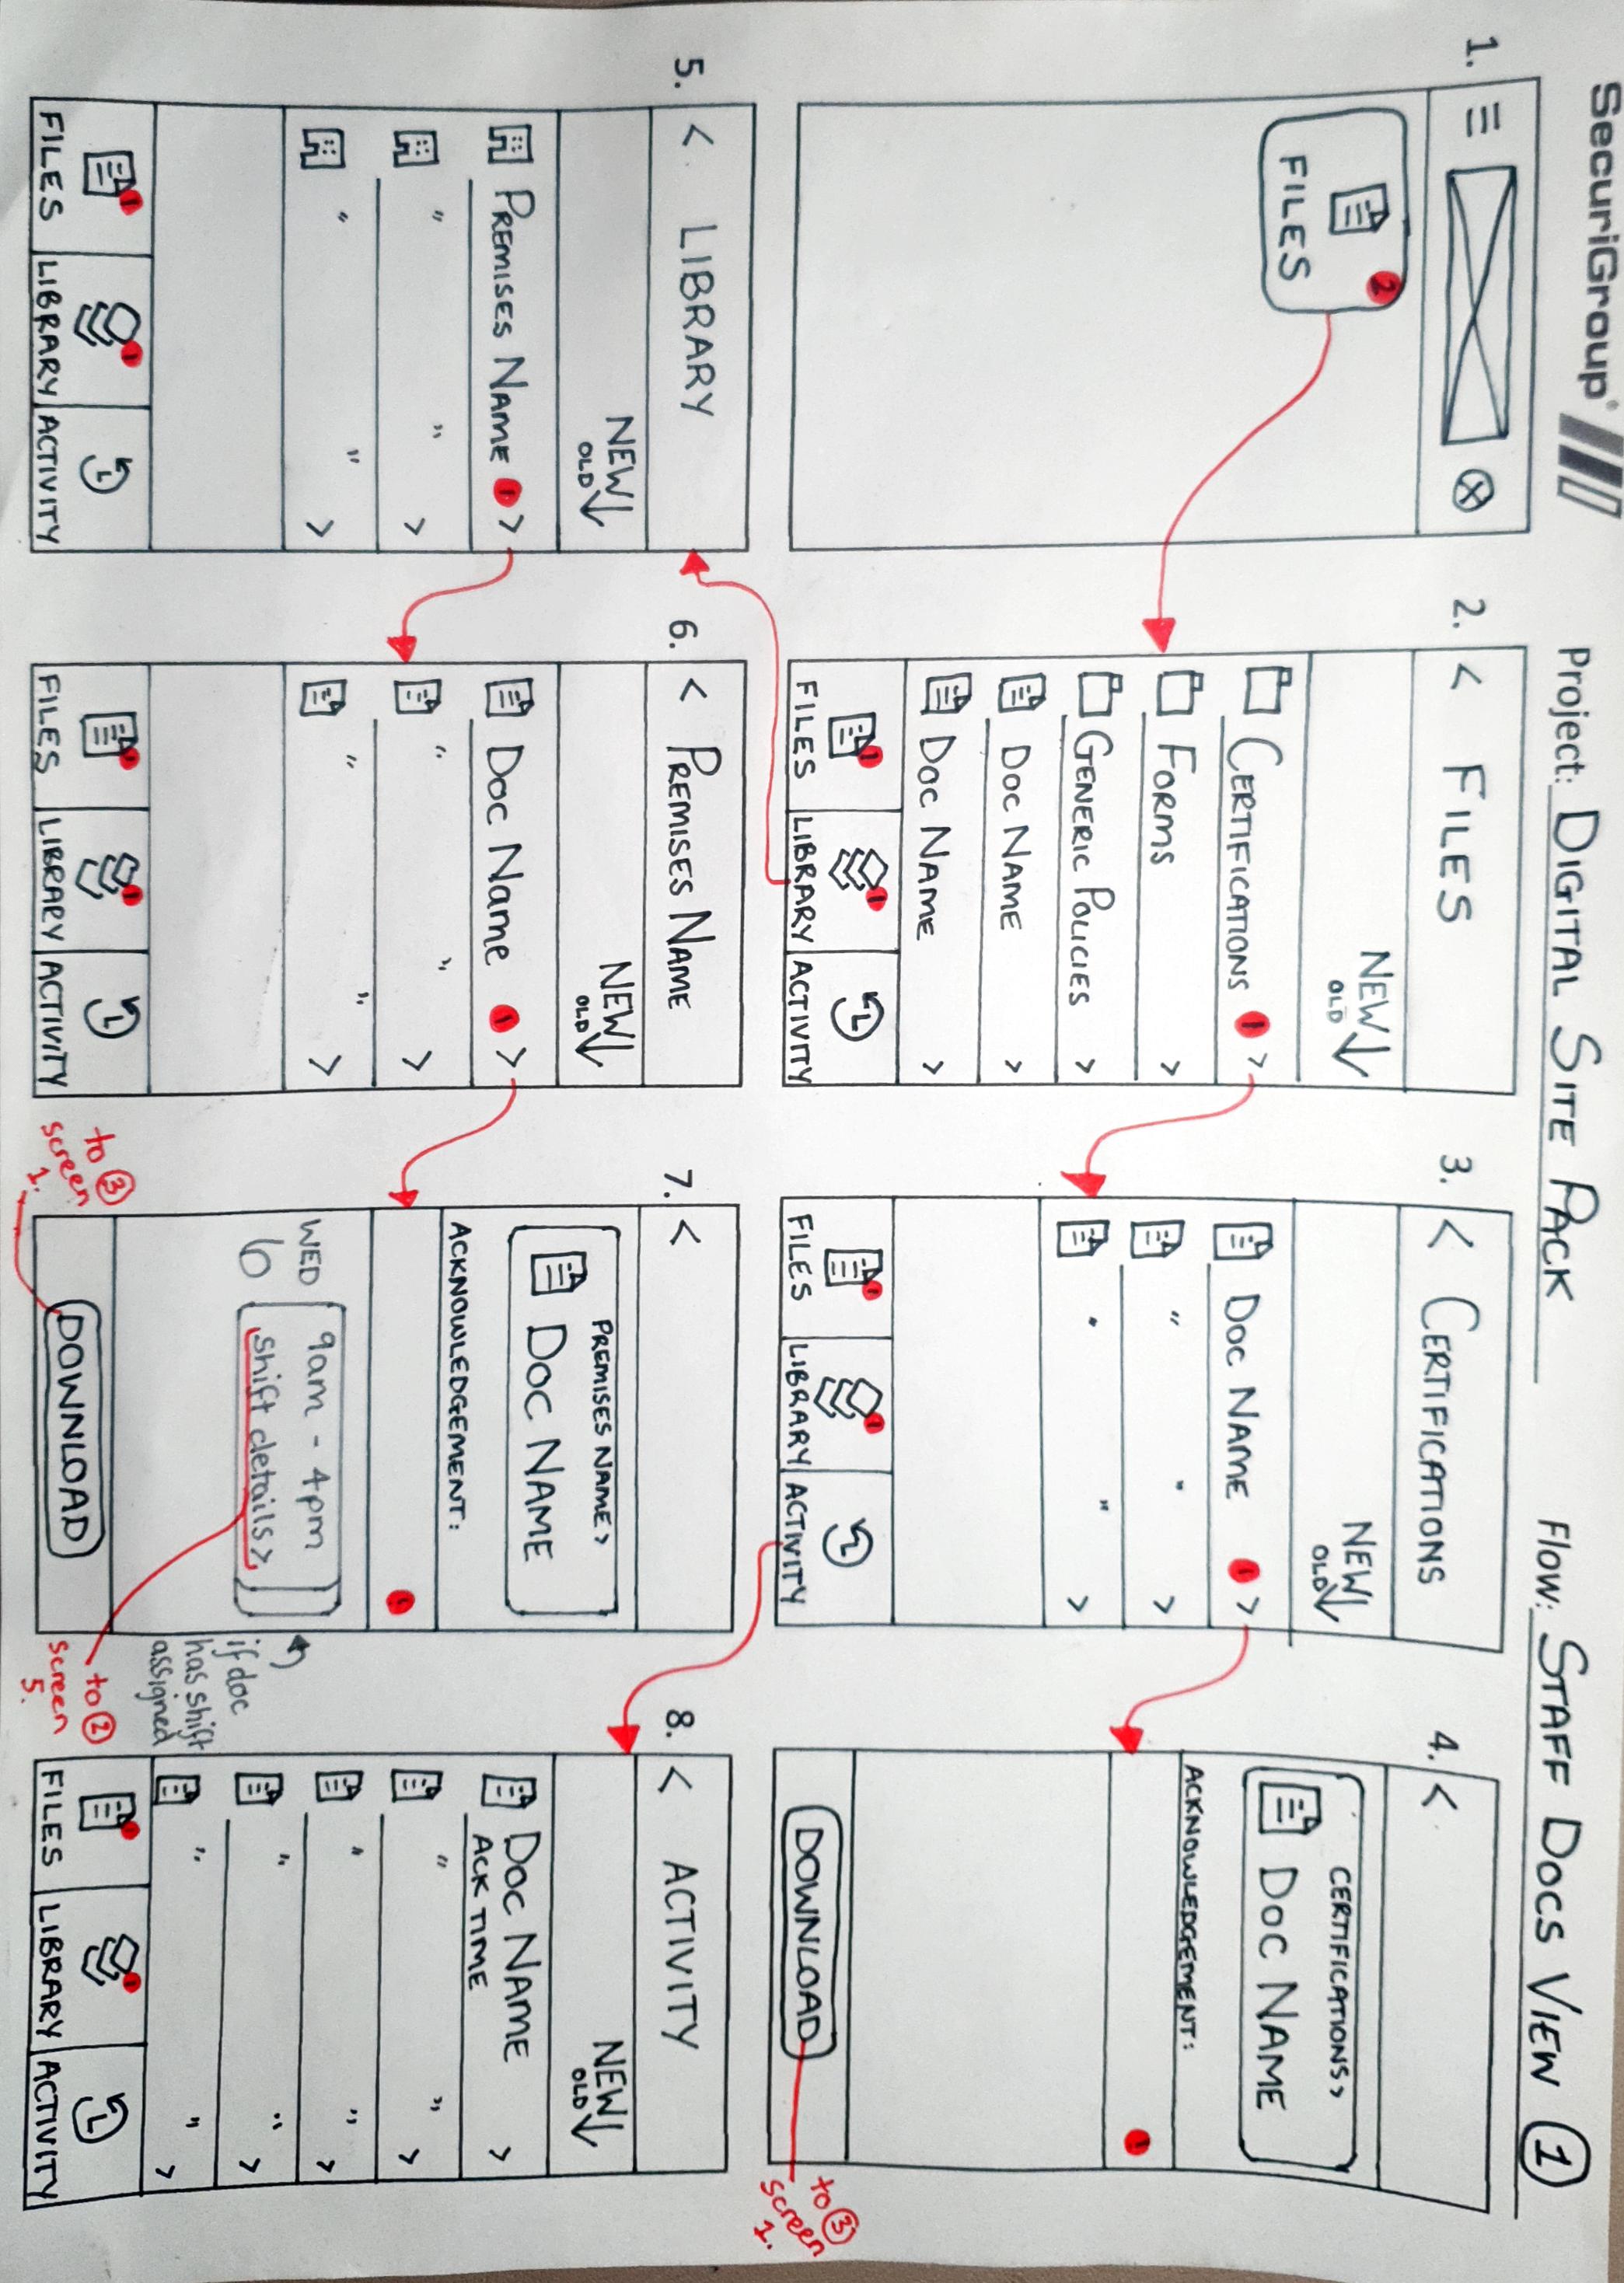 SecuriGroup
Project: DIGITAL SITE PACK
Flow: STAFF DOCS VIEW 1
1.
2
FILES
2.
< FILES
NEW
OLD
CERTIFICATIONS 1 >
FORMS >
GENERIC POLICIES >
DOC NAME >
DOC NAME >
1 1
FILES LIBRARY ACTIVITY
3.
< CERTIFICATIONS
NEW
OLD
DOC NAME 1 >
" " >
" " >
1 1
FILES LIBRARY ACTIVITY
4.
<
CERTIFICATIONS >
DOC NAME
ACKNOWLEDGEMENT:
1
DOWNLOAD
to 3
screen
1.
5.
< LIBRARY
NEW
OLD
PREMISES NAME 1 >
" " >
" " >
1 1
FILES LIBRARY ACTIVITY
6.
< PREMISES NAME
NEW
OLD
DOC NAME 1 >
" " >
" " >
1 1
FILES LIBRARY ACTIVITY
7.
<
PREMISES NAME >
DOC NAME
ACKNOWLEDGEMENT:
1
WED
6
9am - 4pm
shift details >
if doc
has shift
assigned
DOWNLOAD
to 3
screen
1.
to 2
screen
5.
8.
< ACTIVITY
NEW
OLD
DOC NAME >
ACK TIME
" " >
" " >
" " >
" " >
1 1
FILES LIBRARY ACTIVITY